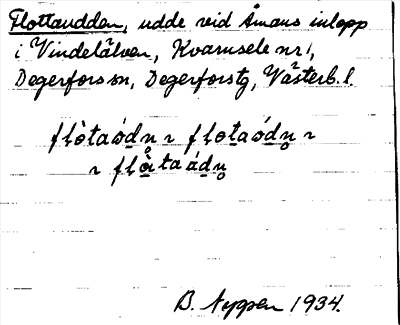 Flottaudden, udde vid Åmans inlopp
i Vindelälven, Kvarnsele nr 1,
Degerfors sn, Degerfors tg, Västerb. l.
flòtaúdn̥ ~ flotaúdn̥ ~
~ flòtaádn̥
1934.